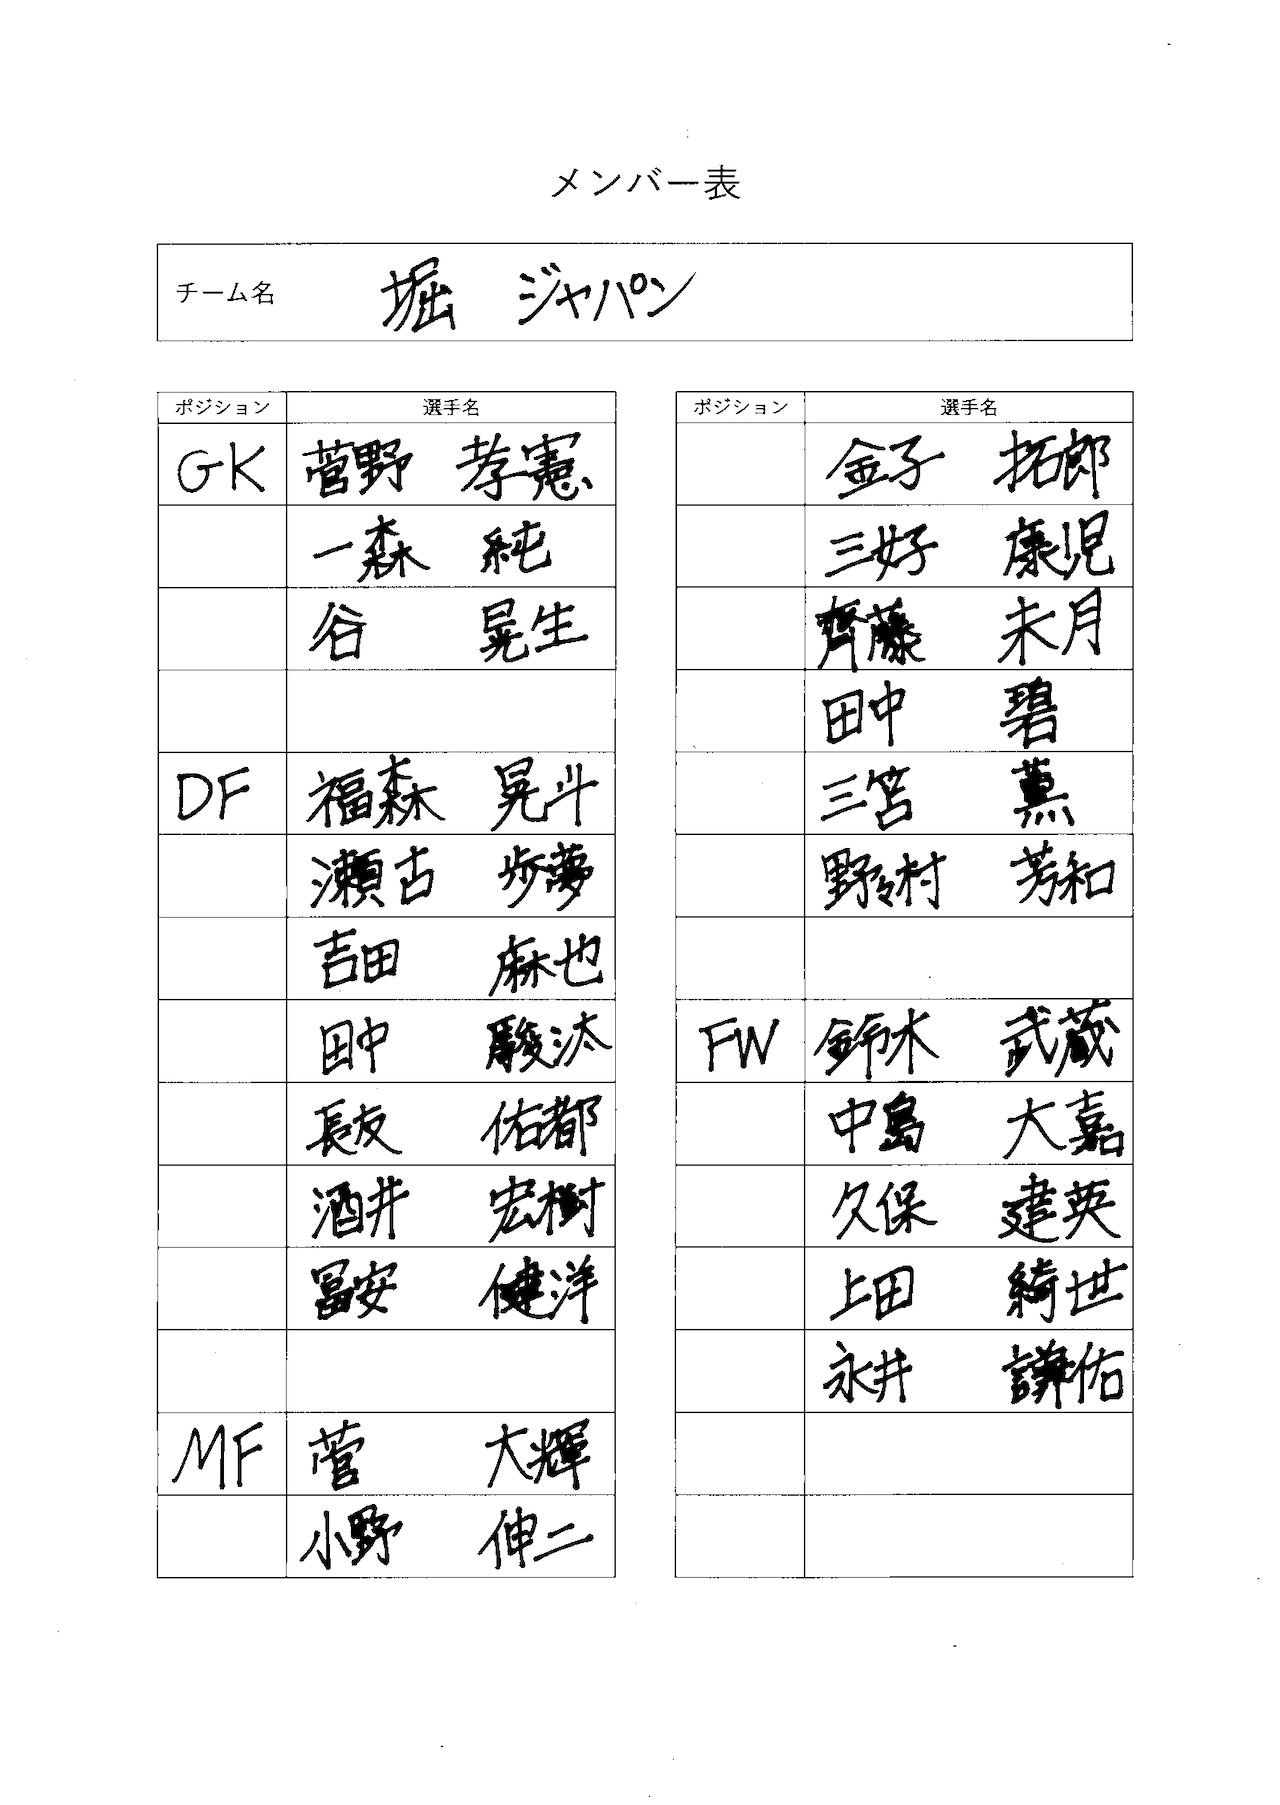 メンバー表
チーム名 堀 ジャパン
ポジション 選手名
GK 菅野 孝憲
一森 純
谷 晃生
DF 福森 晃斗
瀬古 歩夢
吉田 麻也
田中 駿汰
長友 佑都
酒井 宏樹
冨安 健洋
MF 菅 大輝
小野 伸二
ポジション 選手名
金子 拓郎
三好 康児
齊藤 未月
田中 碧
三笘 薫
野々村 芳和
FW 鈴木 武蔵
中島 大嘉
久保 建英
上田 綺世
永井 謙佑